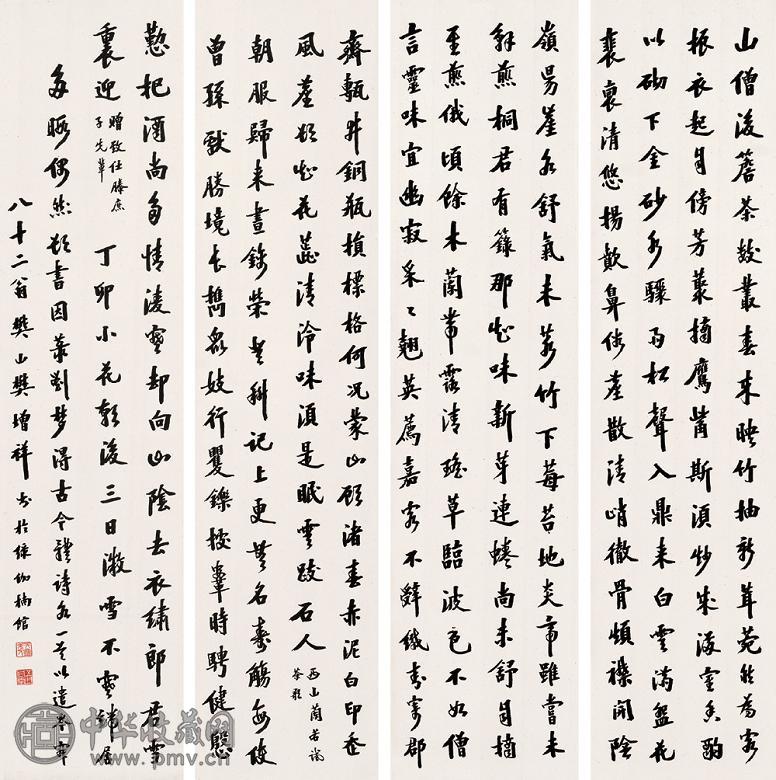 山僧後簷茶數叢春來映竹抽新茸莞然為客
振衣起自傍芳叢摘鷹觜斯須炒成滿室香酌
以砌下金砂水驟雨松聲入鼎來白雲滿盌花
清悠揚歕鼻散清峭徹骨煩襟開陰
嶺昜崖各舒氣未若竹下莓苔地炎帝雖嘗未
解煎桐君有籙那知味新芽連蜷尚未舒自摘
至煎俄頃餘木蘭帶露清瑤草臨波色不如僧
言靈味宜幽寂采々翹英薦嘉客不辭緘封寄郡
齋甎井銅瓶損標格何況蒙山顧渚春赤泥白印委
風塵欲知花蕊清泠味須是眠雲跂石人 西山蘭若試
茶歌
朝服歸來晝錦榮登科記上更無名壽觴每使
曾孫獻勝境長攜眾妓行矍鑠據鞍時騁健慇
懃把酒尚多情凌寒卻向山陰去衣繡郎君雪
裏迎 贈致仕滕庶
子先輩 丁卯小花朝後三日微雪不寒端居
多暇偶然欲書因錄劉夢得古今體詩各一首以遣岑寂
八十二翁樊山樊增祥書於綠館
中华收藏网
www.pmv.cn